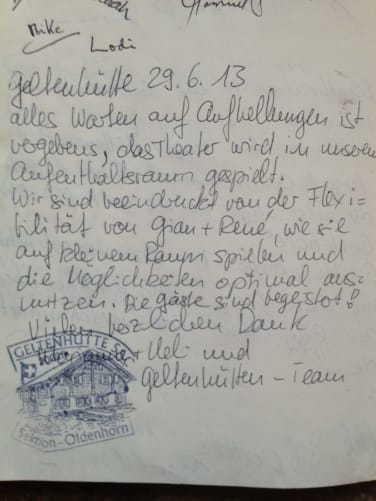 Mike
Lodi
Geltenhütte 29.6.13
alles Warten auf Aufhellungen ist
vergebens, das Theater wird in unserem
Aufenthaltsraum gespielt.
Wir sind beeindruckt von der Flexi=
bilität von Gian + René, wie sie
auf kleinem Raum spielen und
die Möglichkeiten optimal aus-
nutzen. Die Gäste sind begeistert!
Vielen herzlichen Dank
+ Ueli und
Geltenhütten-Team
GELTENHÜTTE SAC
Sektion-Oldenhorn